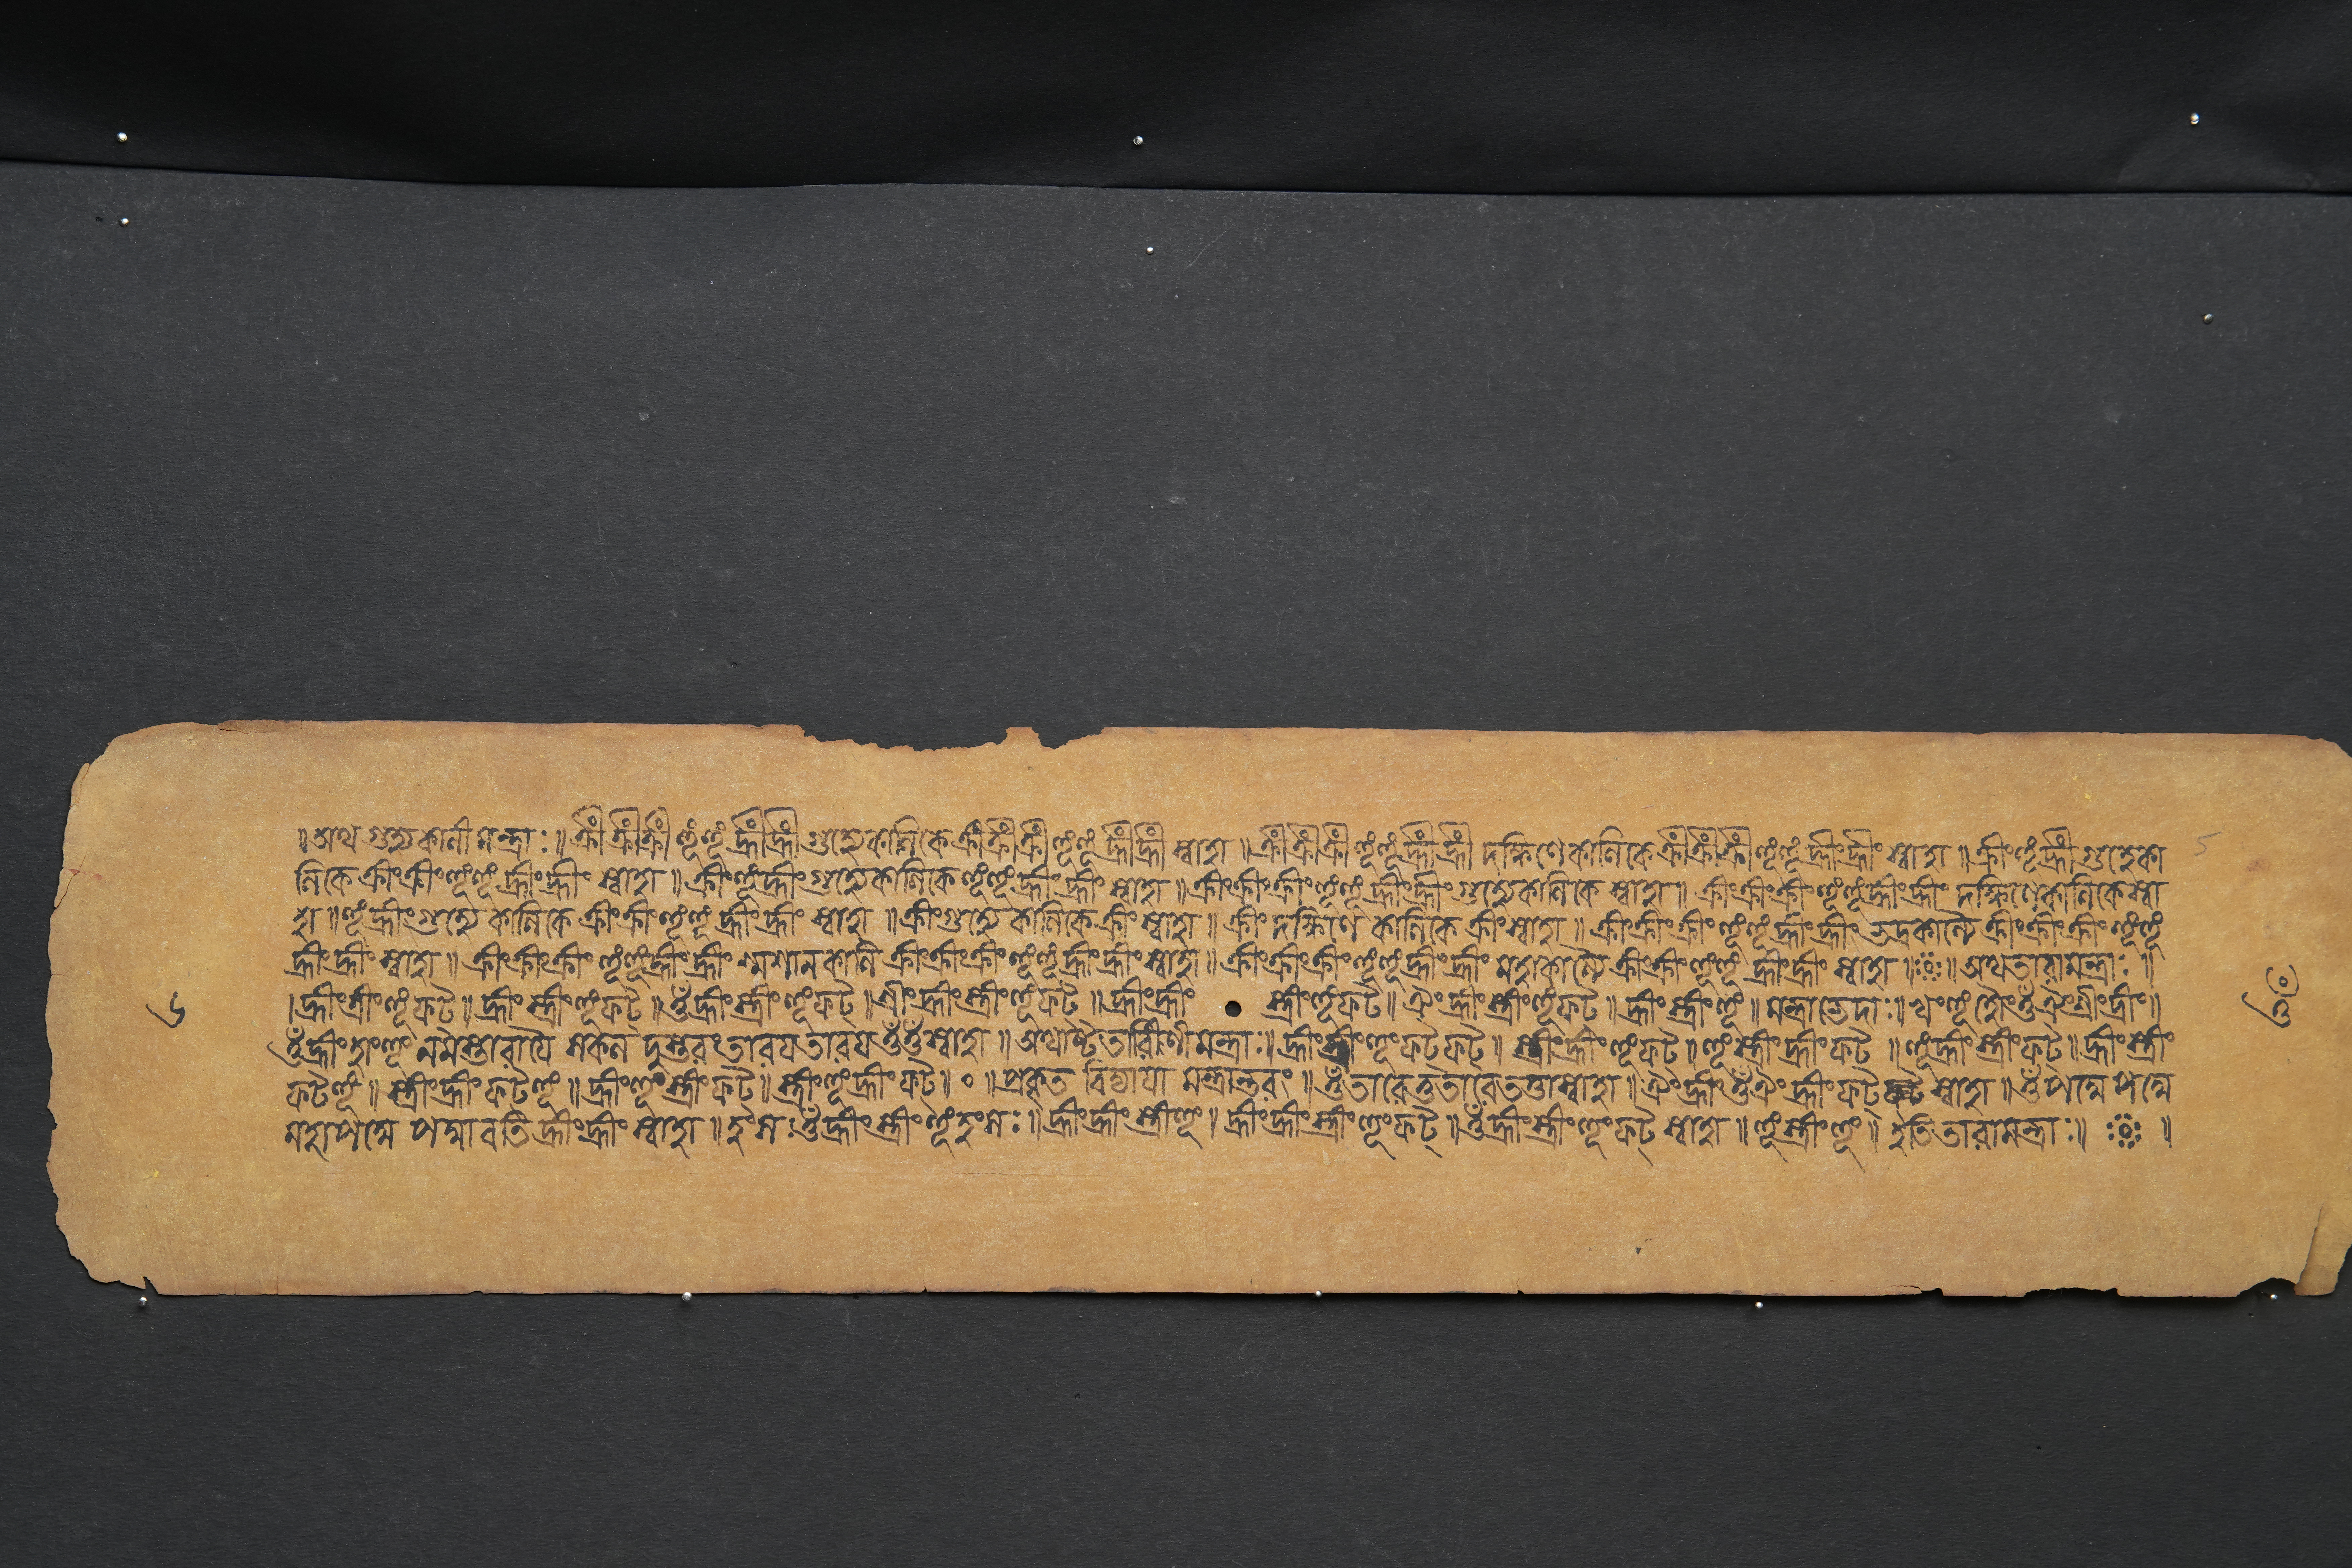 ॥ অথ গুহ্যকালীমন্ত্রাঃ ॥ ক্রীঁ ক্রীঁ ক্রীঁ হূঁ হূঁ হ্রীঁ হ্রীঁ গুহ্যেকালিকে ক্রীঁ ক্রীঁ ক্রীঁ হূঁ হূঁ হ্রীঁ হ্রীঁ স্বাহা ॥ ক্রীঁ ক্রীঁ ক্রীঁ হূঁ হূঁ হ্রীঁ হ্রীঁ দক্ষিণেকালিকে ক্রীঁ ক্রীঁ ক্রীঁ হূঁ হূঁ হ্রীং হ্রীং স্বাহা ॥ ক্রীং হূঁ হ্রীঁ গুহ্যেকা
লিকে ক্রীং ক্রীং হূঁ হূঁ হ্রীং হ্রীং স্বাহা ॥ ক্রীং হূঁ হ্রীং গুহ্যেকালিকে হূঁ হূঁ হ্রীং হ্রীং স্বাহা ॥ ক্রীং ক্রীং ক্রীং হূঁ হূঁ হ্রীং হ্রীং গুহ্যেকালিকে স্বাহা ॥ ক্রীং ক্রীং ক্রীং হূঁ হূঁ হ্রীং হ্রীং দক্ষিণেকালিকেস্বা
হা ॥ হূঁ হ্রীং গুহ্যেকালিকে ক্রীং ক্রীং হূঁ হূঁ হ্রীং হ্রীং স্বাহা ॥ ক্রীং গুহ্যেকালিকে ক্রীং স্বাহা ॥ ক্রীং দক্ষিণেকালিকে ক্রীং স্বাহা ॥ ক্রীং ক্রীং ক্রীং হূঁ হূঁ হ্রীং হ্রীং ভদ্রকাল্যৈ ক্রীং ক্রীং ক্রীং হূঁ হূঁ
হ্রীং হ্রীং স্বাহা ॥ ক্রীং ক্রীং ক্রীং হূঁ হূঁ হ্রীং হ্রীং শ্মশানকালি ক্রীং ক্রীং ক্রীং হূঁ হূঁ হ্রীং হ্রীং স্বাহা ॥ ক্রীং ক্রীং ক্রীং হূঁ হূঁ হ্রীং হ্রীং মহাকাল্যৈ ক্রীং ক্রীং হূঁ হূঁ হ্রীং হ্রীং স্বাহা ॥ ॥ অথতারামন্ত্রাঃ ॥
। হ্রীং ত্রীং হূঁ ফট ॥ হ্রীং স্ত্রীং হূঁ ফট ॥ ওঁ হ্রীং স্ত্রীং হূঁ ফট ॥ শ্রীং হ্রীং স্ত্রীং হূঁ ফট ॥ হ্রীং হ্রীং স্ত্রীং হূঁ ফট ॥ ঐং হ্রীং স্ত্রীং হূঁ ফট ॥ হ্রীং স্ত্রীং হূঁ ॥ মন্ত্রাভেদাঃ ॥
ওঁ হ্রীং হাং হূং নমস্তারায়ৈ সকল দুস্তরং তারয তারয ওঁ ওঁ স্বাহা ॥ অথাষ্টৈতারিণীমন্ত্রাঃ ॥ হ্রীং স্ত্রীং হূং ফট ফট ॥ স্ত্রীং হ্রীং হূঁ ফট ॥ হূঁ স্ত্রীং হ্রীং ফট ॥ হূঁ হ্রীং স্ত্রীং ফট ॥ হ্রীং স্ত্রীং
ফট হূঁ ॥ স্ত্রীং হ্রীং ফট হূঁ ॥ হ্রীং হূঁ স্ত্রীং ফট ॥ স্ত্রীং হূঁ হ্রীং ফট ॥ ০ ॥ প্রকৃত বিদ্যাযা মন্ত্রান্তরং ॥ ওঁ তারেতুতারে স্বাহা ॥ ঐং হ্রীং ওঁ ঐং হ্রীং ফট স্বাহা ॥ ওঁ পদ্মে পদ্মে
মহাপদ্মে পদ্মাবতি হ্রীং হ্রীং স্বাহা ॥ হংসঃ ওঁ হ্রীং স্ত্রীং হূঁ হংসঃ ॥ হ্রীং হ্রীং স্ত্রীং হূং । হ্রীং হ্রীং স্ত্রীং হূং ফট্ ॥ ওঁ হ্রীং স্ত্রীং হূং ফট্ স্বাহা ॥ হূঁ স্ত্রীং হূং ॥ ইতিতারামন্ত্রাঃ ॥ ॥